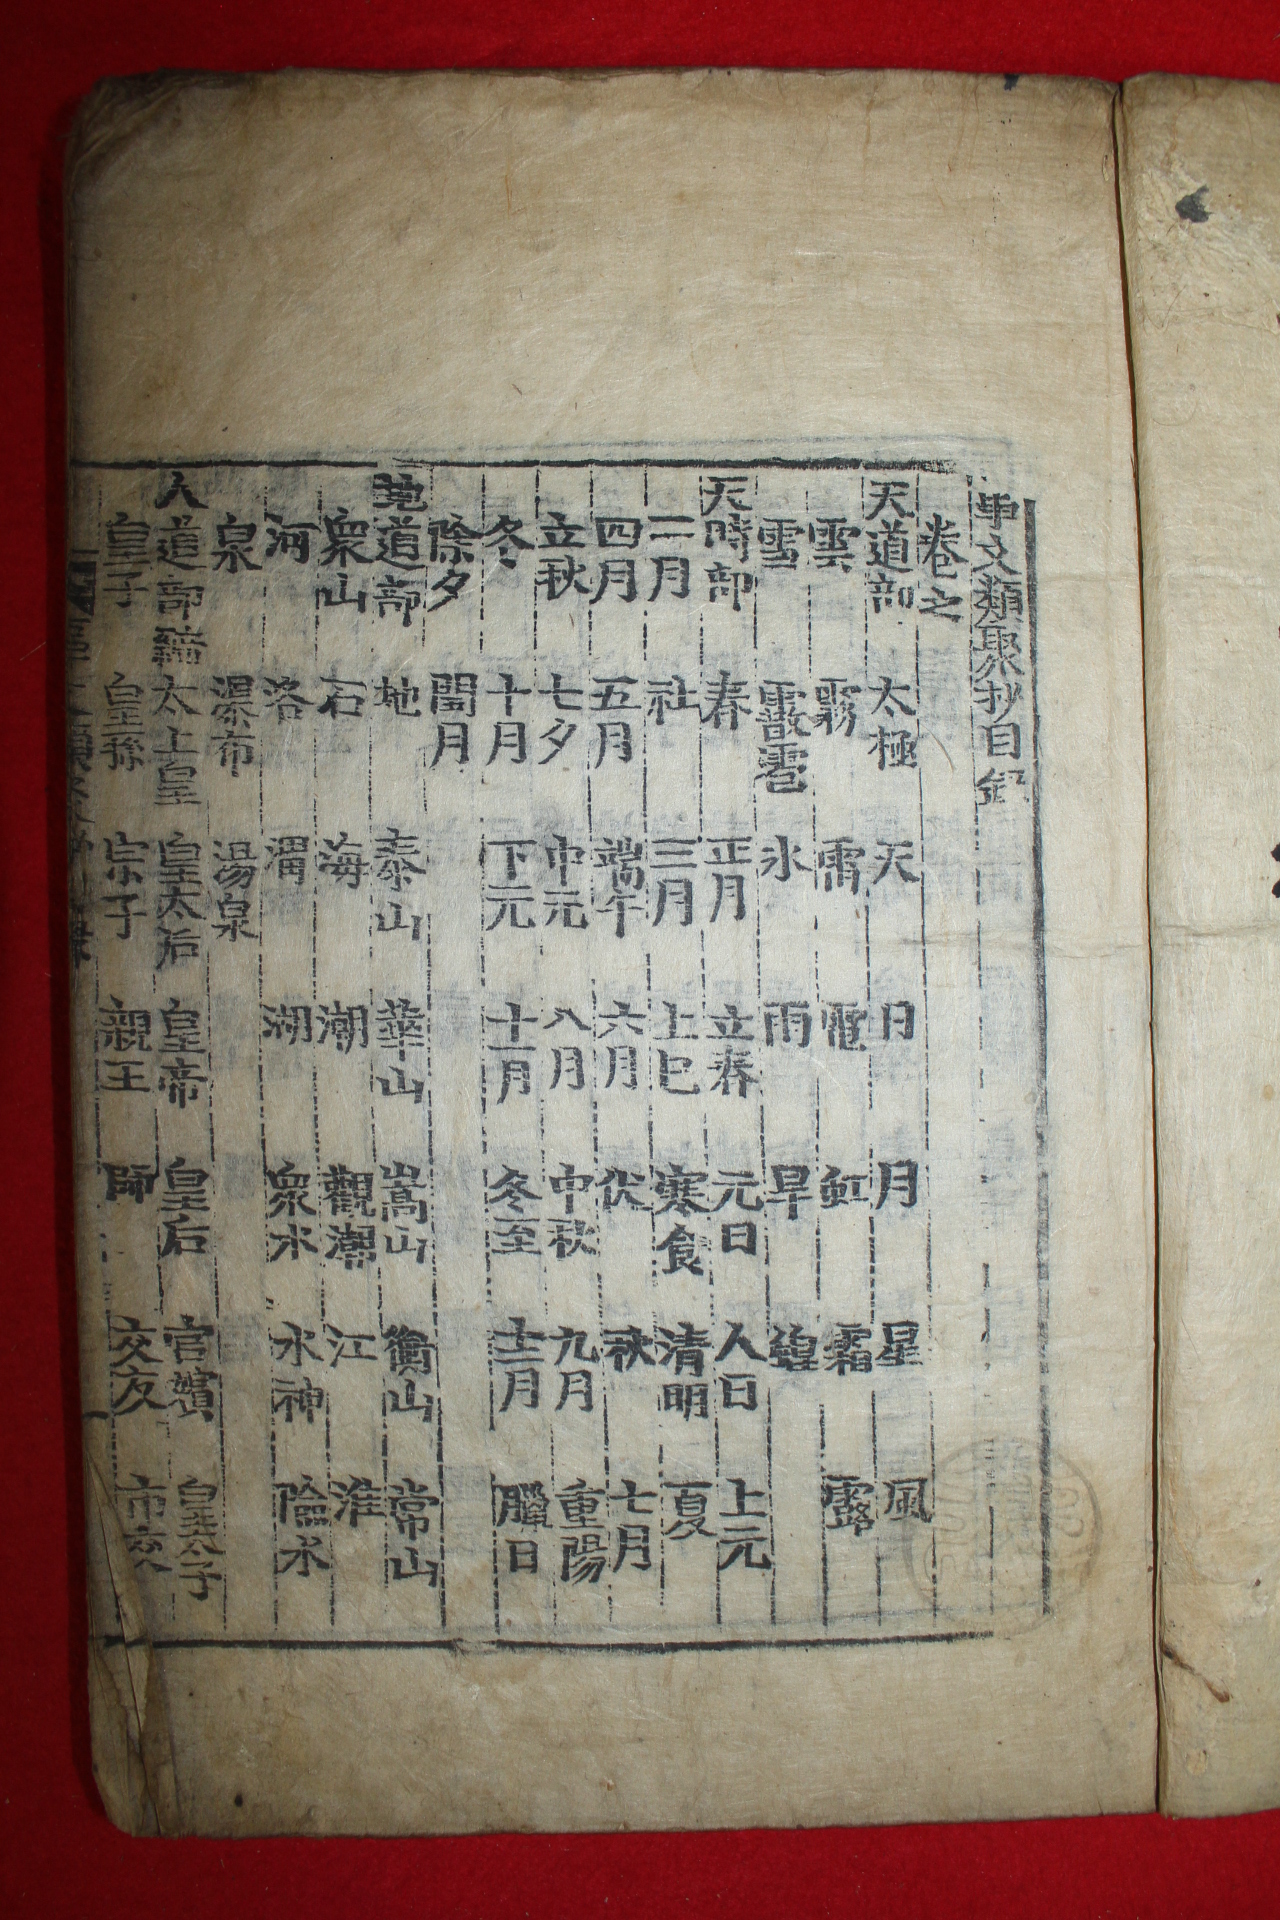 事文類聚抄目錄
卷之
天道部 太極 天 日 月 星 風
雲 霧 雷 電 虹 霜 露
雪 霰雹 氷 雨 旱 蝗
天時部 春 正月 立春 元日 人日 上元
二月 社 三月 上巳 寒食 清明 夏
四月 五月 端午 六月 伏 秋 七月
立秋 七夕 中元 八月 中秋 九月 重陽
冬 十月 下元 十一月 冬至 十二月 臘日
除夕 閏月
地道部 地 泰山 華山 嵩山 衡山 常山
衆山 石 海 潮 觀潮 江 淮
河 洛 渭 湖 衆水 水神 險水
泉 瀑布 湯泉
人道部 太上皇 皇太后 皇帝 皇后 宮嬪 皇太子
皇子 皇孫 宗子 親王 師 交友 市交